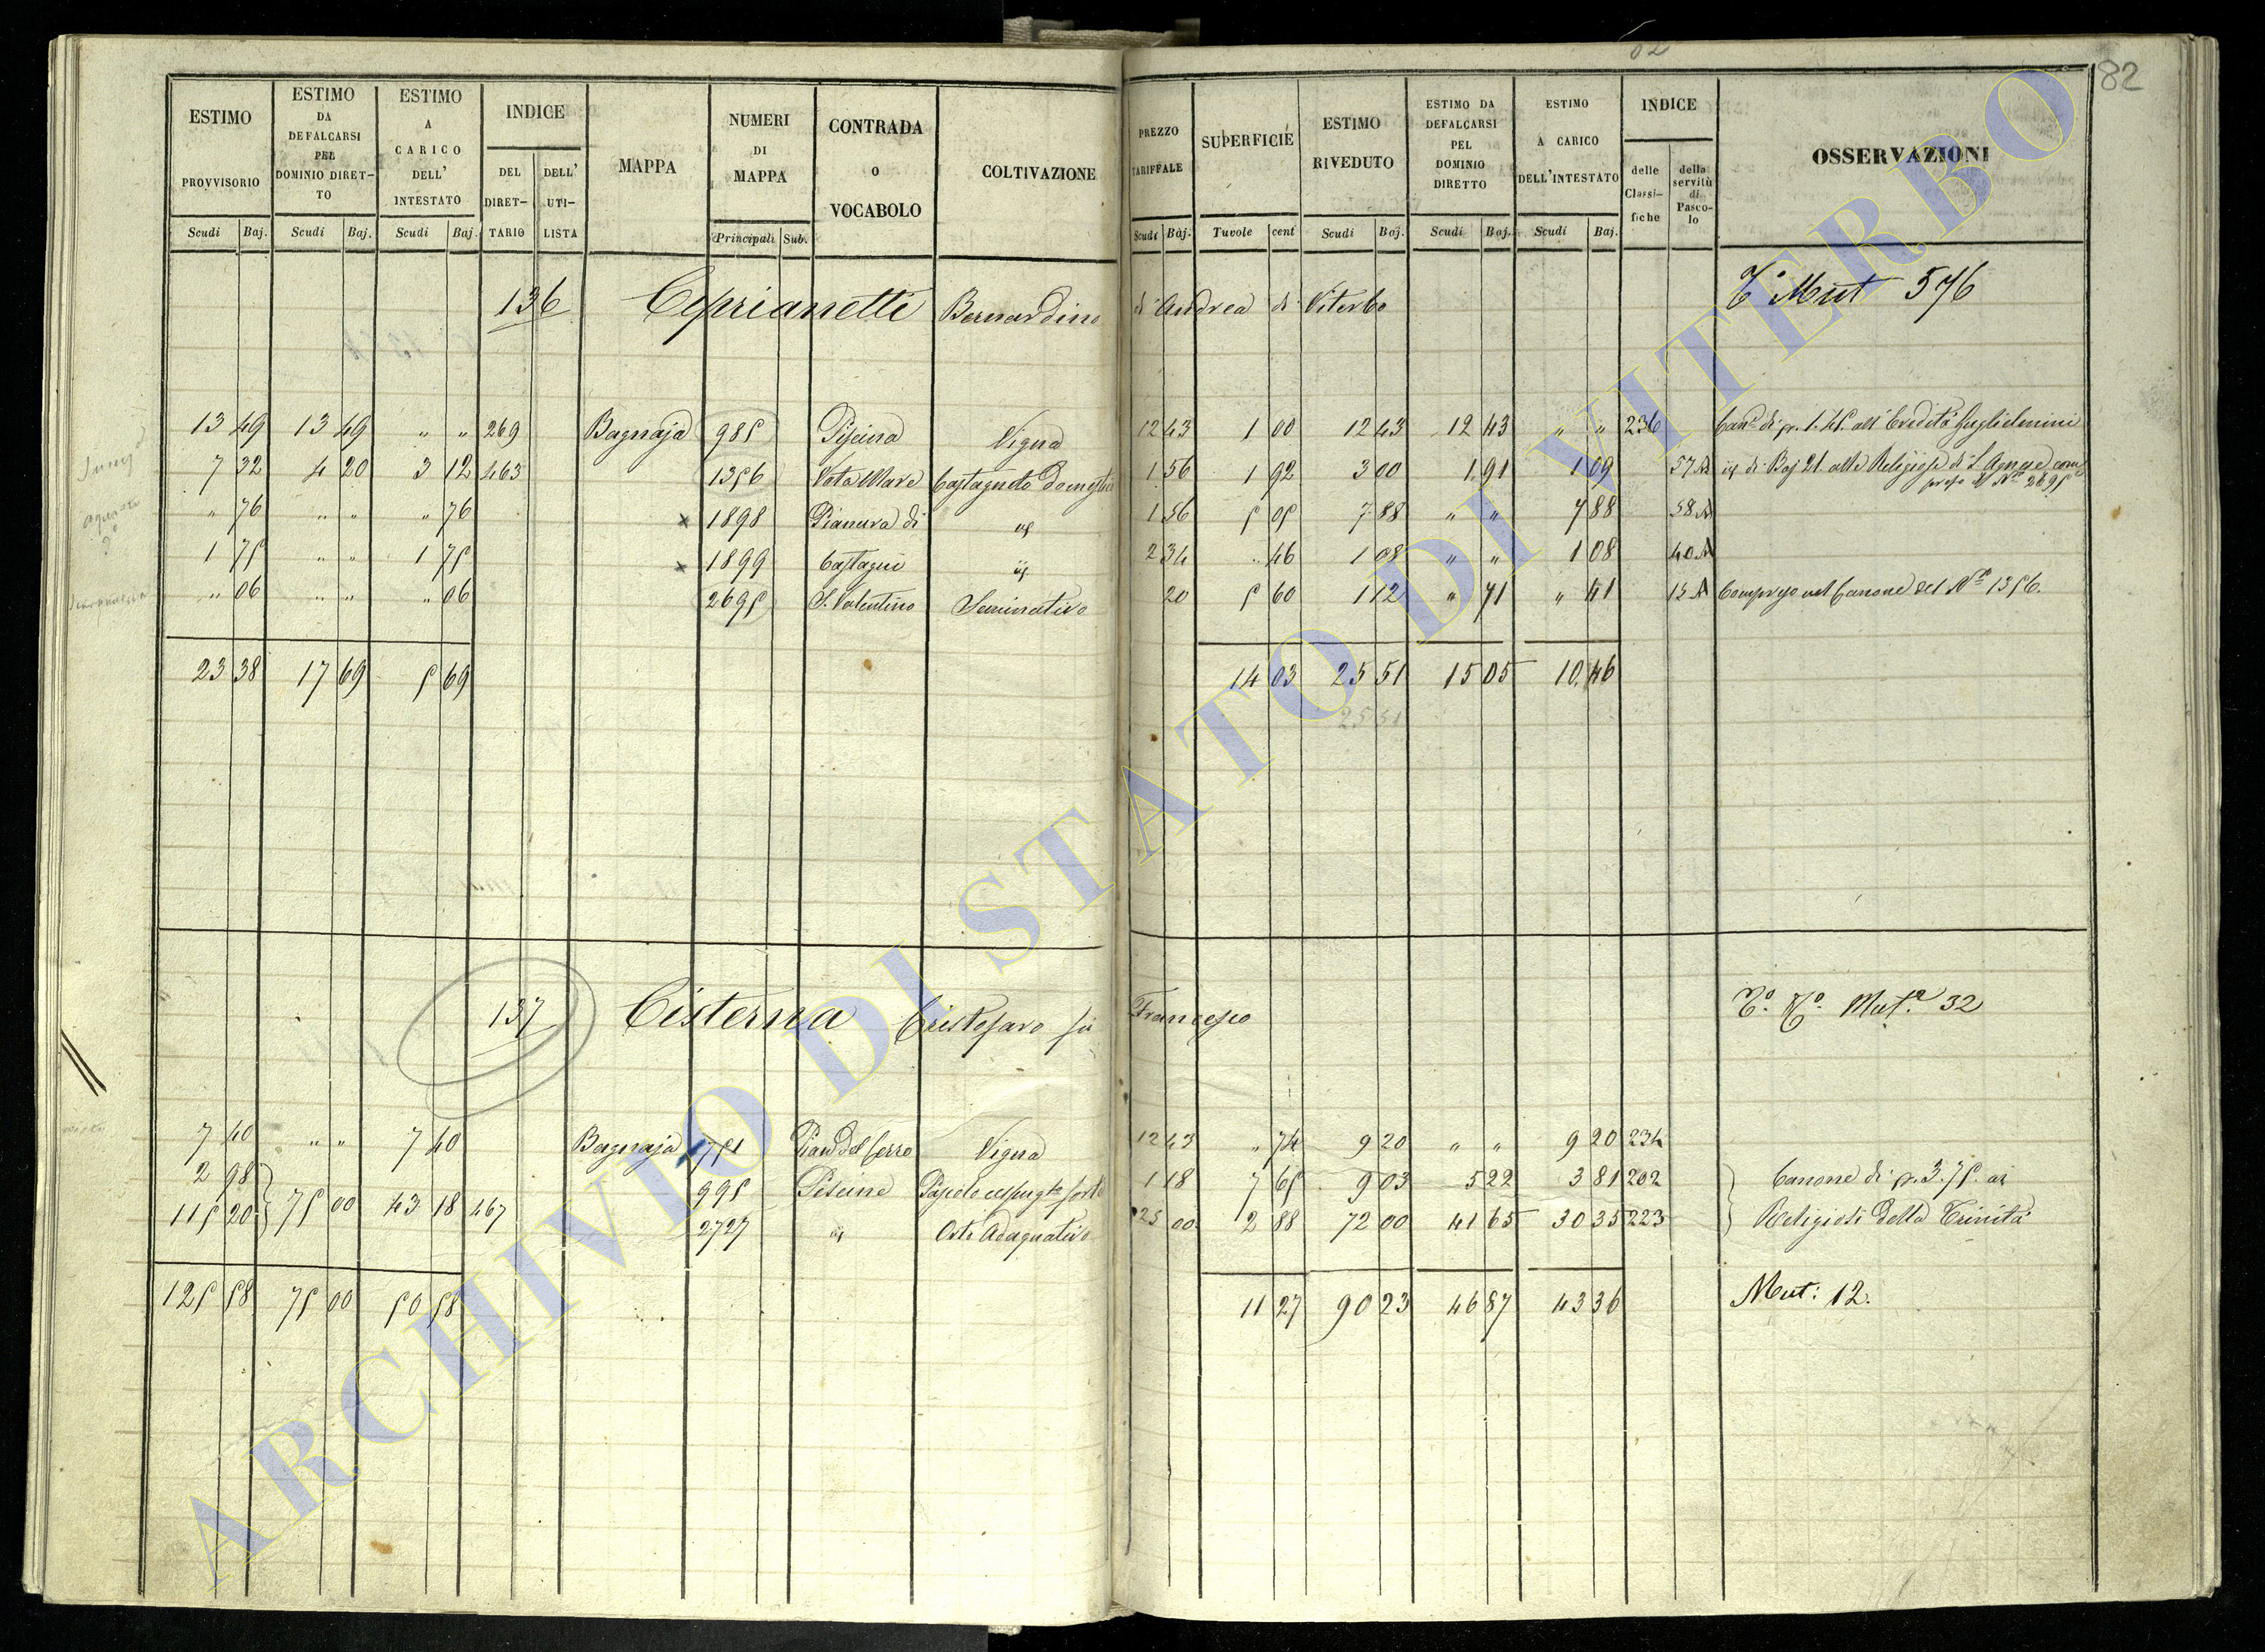 82
ESTIMO PROVVISORIO
ESTIMO DA DEFALCARSI PEL DOMINIO DIRETTO
ESTIMO A CARICO DELL' INTESTATO
INDICE
DEL DIRETTARIO
DELL' UTILISTA
MAPPA
NUMERI DI MAPPA
CONTRADA o VOCABOLO
COLTIVAZIONE
PREZZO TARIFFALE
SUPERFICIE
ESTIMO RIVEDUTO
ESTIMO DA DEFALCARSI PEL DOMINIO DIRETTO
ESTIMO A CARICO DELL'INTESTATO
INDICE
delle Classifiche
della servitù di Pascolo
OSSERVAZIONI
Scudi Baj. Scudi Baj. Scudi Baj. Principali Sub. Scudi Baj. Tavole cent Scudi Baj. Scudi Baj. Scudi Baj.
136 Ciprianetti Bernardino di Andrea di Viterbo Mut 576
13 49 13 49 " " 269 Bagnaja 985 Piscina Vigna 12 43 1 00 12 43 12 43 " " 236 Can.e di p. 1.45. all' Eredità Guglielmini
7 32 4 20 3 12 463 1356 Vota Mare Castagneto Domestico 1 56 1 92 3 00 1 91 1 09 57 A id. di Baj 21. alle Religiose di S. Agnese com
preso il N.o 2695
" 76 " " " 76 x 1898 Pianura di id 1 56 5 05 7 88 " " 7 88 58 A
1 75 " " 1 75 x 1899 Castagni id 2 34 " 46 1 08 " " 1 08 40 A
" 06 " " " 06 2695 S. Valentino Seminativo 20 5 60 1 12 " 71 " 41 15 A Compreso nel Canone del N.o 1356.
23 38 17 69 5 69 14 03 25 51 15 05 10 46
25 51
137 Cisterna Cristofaro fu Francesco Mut.a 32
7 40 " " 7 40 Bagnaja 751 Pian del Cerro Vigna 12 43 " 74 9 20 " " 9 20 234
2 98 995 Piscine Pascolo cespug.to forte 1 18 7 65 9 03 5 22 3 81 202 Canone di p. 3.75. ai
115 20 75 00 43 18 467 2727 id Orto Adaquativo 25 00 2 88 72 00 41 65 30 35 223 Religiosi della Trinità
125 58 75 00 50 58 11 27 90 23 46 87 43 36 Mut: 12.
ARCHIVIO DI STATO DI VITERBO